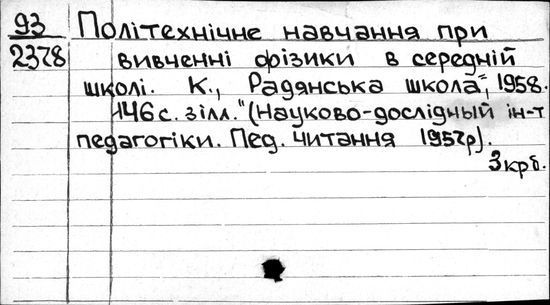 93 Політехнічне навчання при
2378 вивченні фізики в середній
школі. К., „Радянська школа", 1958.
146 с. з ілл. (Науково-дослідный ін-т
педагогіки. Пед. читання 1957р).
3 крб.